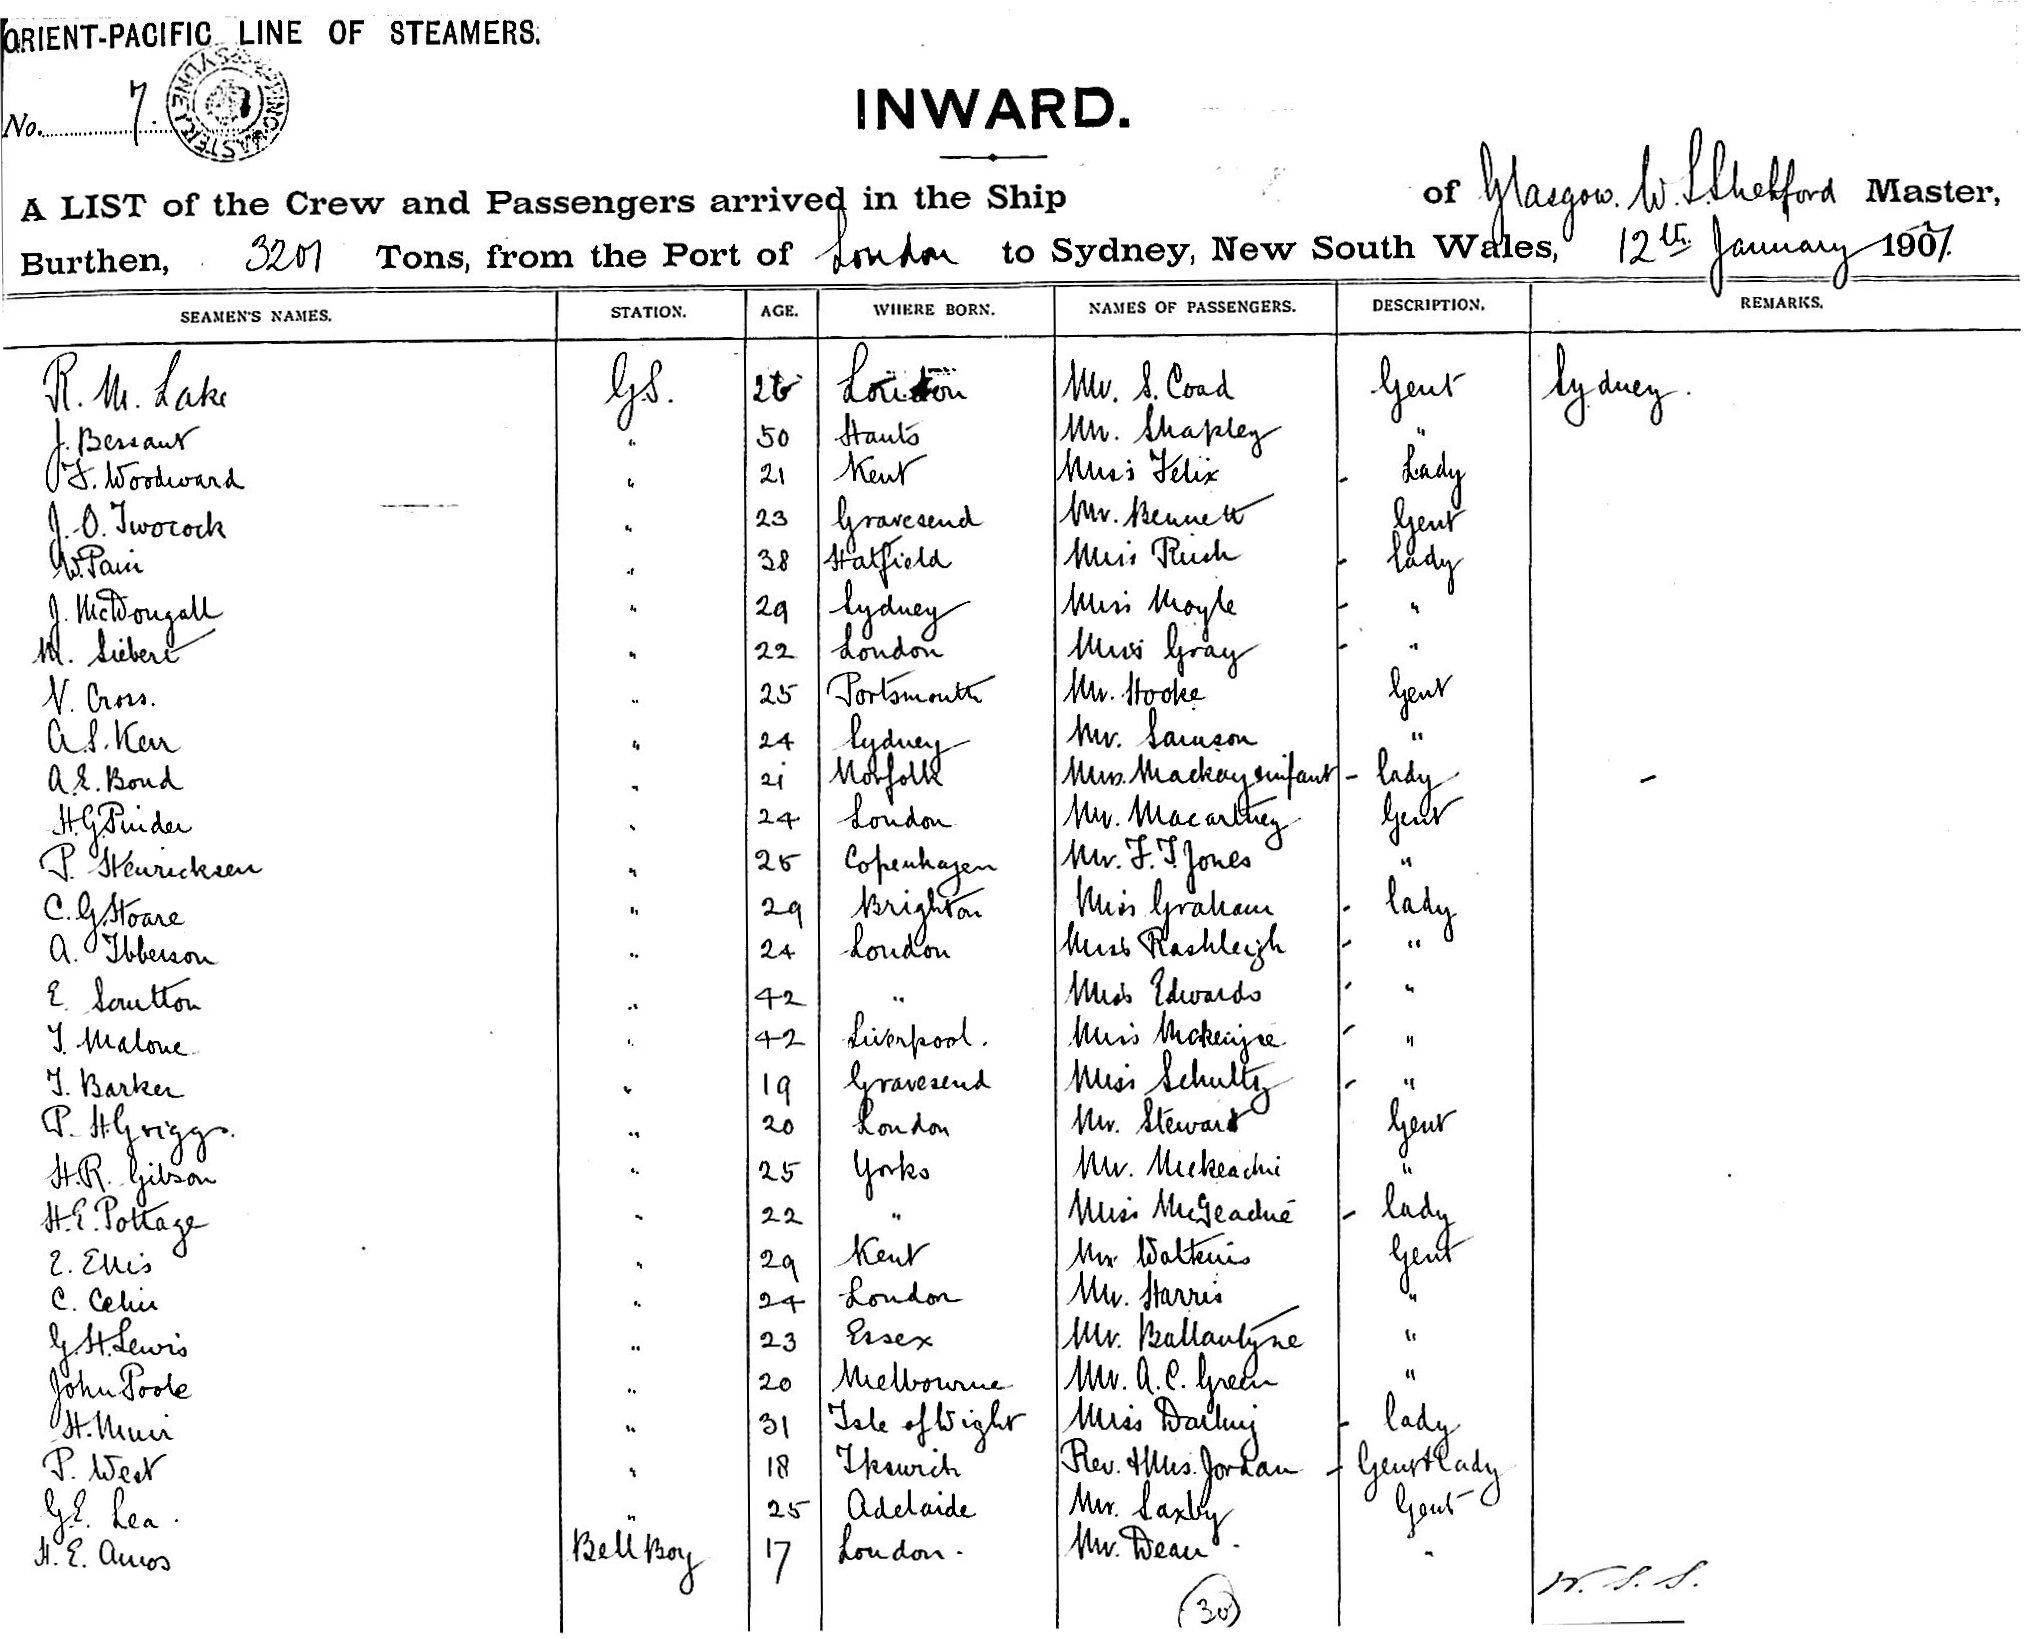 ORIENT-PACIFIC LINE OF STEAMERS.
No. 7.
INWARD.
A LIST of the Crew and Passengers arrived in the Ship of Glasgow. W. S. Shelford Master,
Burthen, 3201 Tons, from the Port of London to Sydney, New South Wales, 12th January 1907.
SEAMEN'S NAMES. STATION. AGE. WHERE BORN. NAMES OF PASSENGERS. DESCRIPTION. REMARKS.
R. M. Lake G.S. 26 London Mr. S. Coad Gent Sydney.
J. Bessant " 50 Hants Mr. Shapley "
F. Woodward " 21 Kent Miss Felix - Lady
J. O. Twocock " 23 Gravesend Mr. Bennett Gent
W. Pain " 38 Hatfield Miss Rush - lady
J. McDougall " 29 Sydney Miss Moyle - "
M. Siebert " 22 London Miss Gray - "
V. Cross. " 25 Portsmouth Mr. Hooke Gent
A. S. Kerr " 24 Sydney Mr. Samson "
A. E. Bond " 21 Norfolk Mrs. Mackay & infant - lady -
H. G. Pinder " 24 London Mr. Macartney Gent
P. Henricksen " 25 Copenhagen Mr. F. T. Jones "
C. G. Hoare " 29 Brighton Miss Graham - lady
A. Ibberson " 24 London Miss Rashleigh - "
E. Scrutton " 42 " Miss Edwards - "
T. Malone " 42 Liverpool. Miss McKenzie - "
T. Barker " 19 Gravesend Miss Schultz - "
P. H. Griggs. " 20 London Mr. Stewart Gent
H. R. Gibson " 25 Yorks Mr. McKeachie "
H. E. Pottage " 22 " Miss McGeachie - lady
E. Ellis " 29 Kent Mr Watkins Gent
C. " 24 London Mr. Harris "
G. H. Lewis " 23 Essex Mr. Ballantyne "
John Poole " 20 Melbourne Mr. A. C. Green "
H. Muir " 31 Isle of Wight Miss Darling - lady
P. West " 18 Ipswich Rev. & Mrs. Jordan - Gent & Lady
G. E. Lea. " 25 Adelaide Mr. Saxby Gent
H. E. Amos Bell Boy 17 London. Mr. Dean "
W. S. S.
(30)